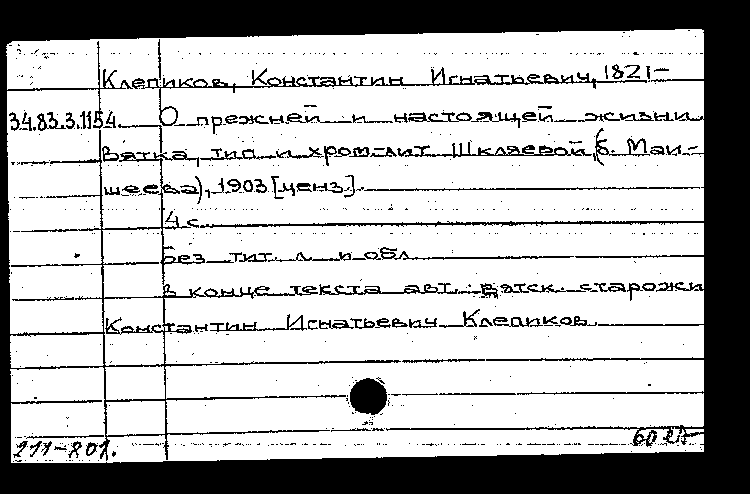 Клепиков, Константин Игнатьевич, 1821-
34.83.3.1154. О прежней и настоящей жизни.
Вятка, тип. и хром-лит. Шкляевой (б. Маи-
шеева), 1903 [ценз.].
4 с.
Без тит. л. и обл.
В конце текста авт.: вятск. старожи
Константин Игнатьевич Клепиков.
211-801.